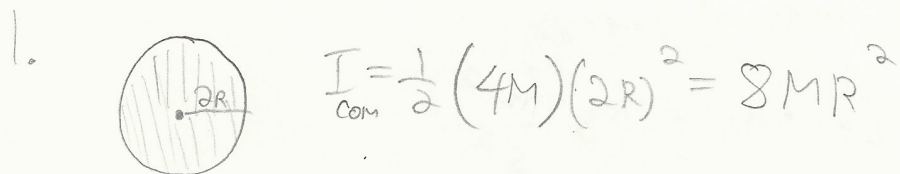 1.
2R
I_COM = 1/2 (4M)(2R)^2 = 8MR^2